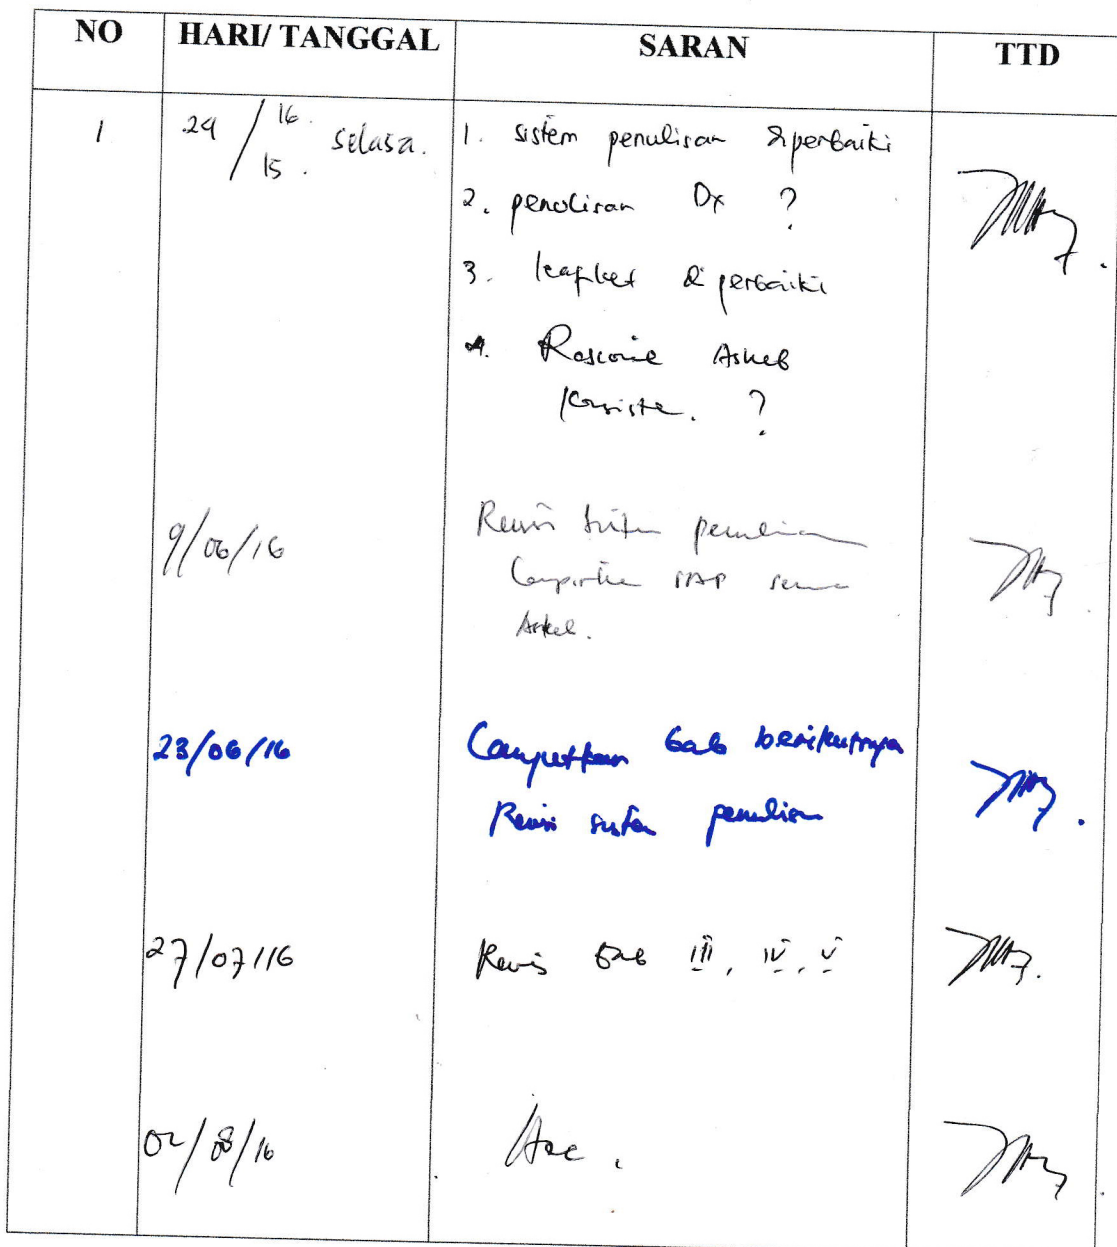 NO HARI/ TANGGAL SARAN TTD
1 24 / 16. 15. selasa. 1. sistem penulisan diperbaiki
2. penulisan Dx ?
3. leaflet diperbaiki
4. Askeb
?
9/06/16 Revisi sistem penulisan
SAP
Askeb.
23/06/16 Lanjutkan bab berikutnya
Revisi sistem penulisan
27/07/16 Revisi bab III, IV, V
02/08/16 Acc.